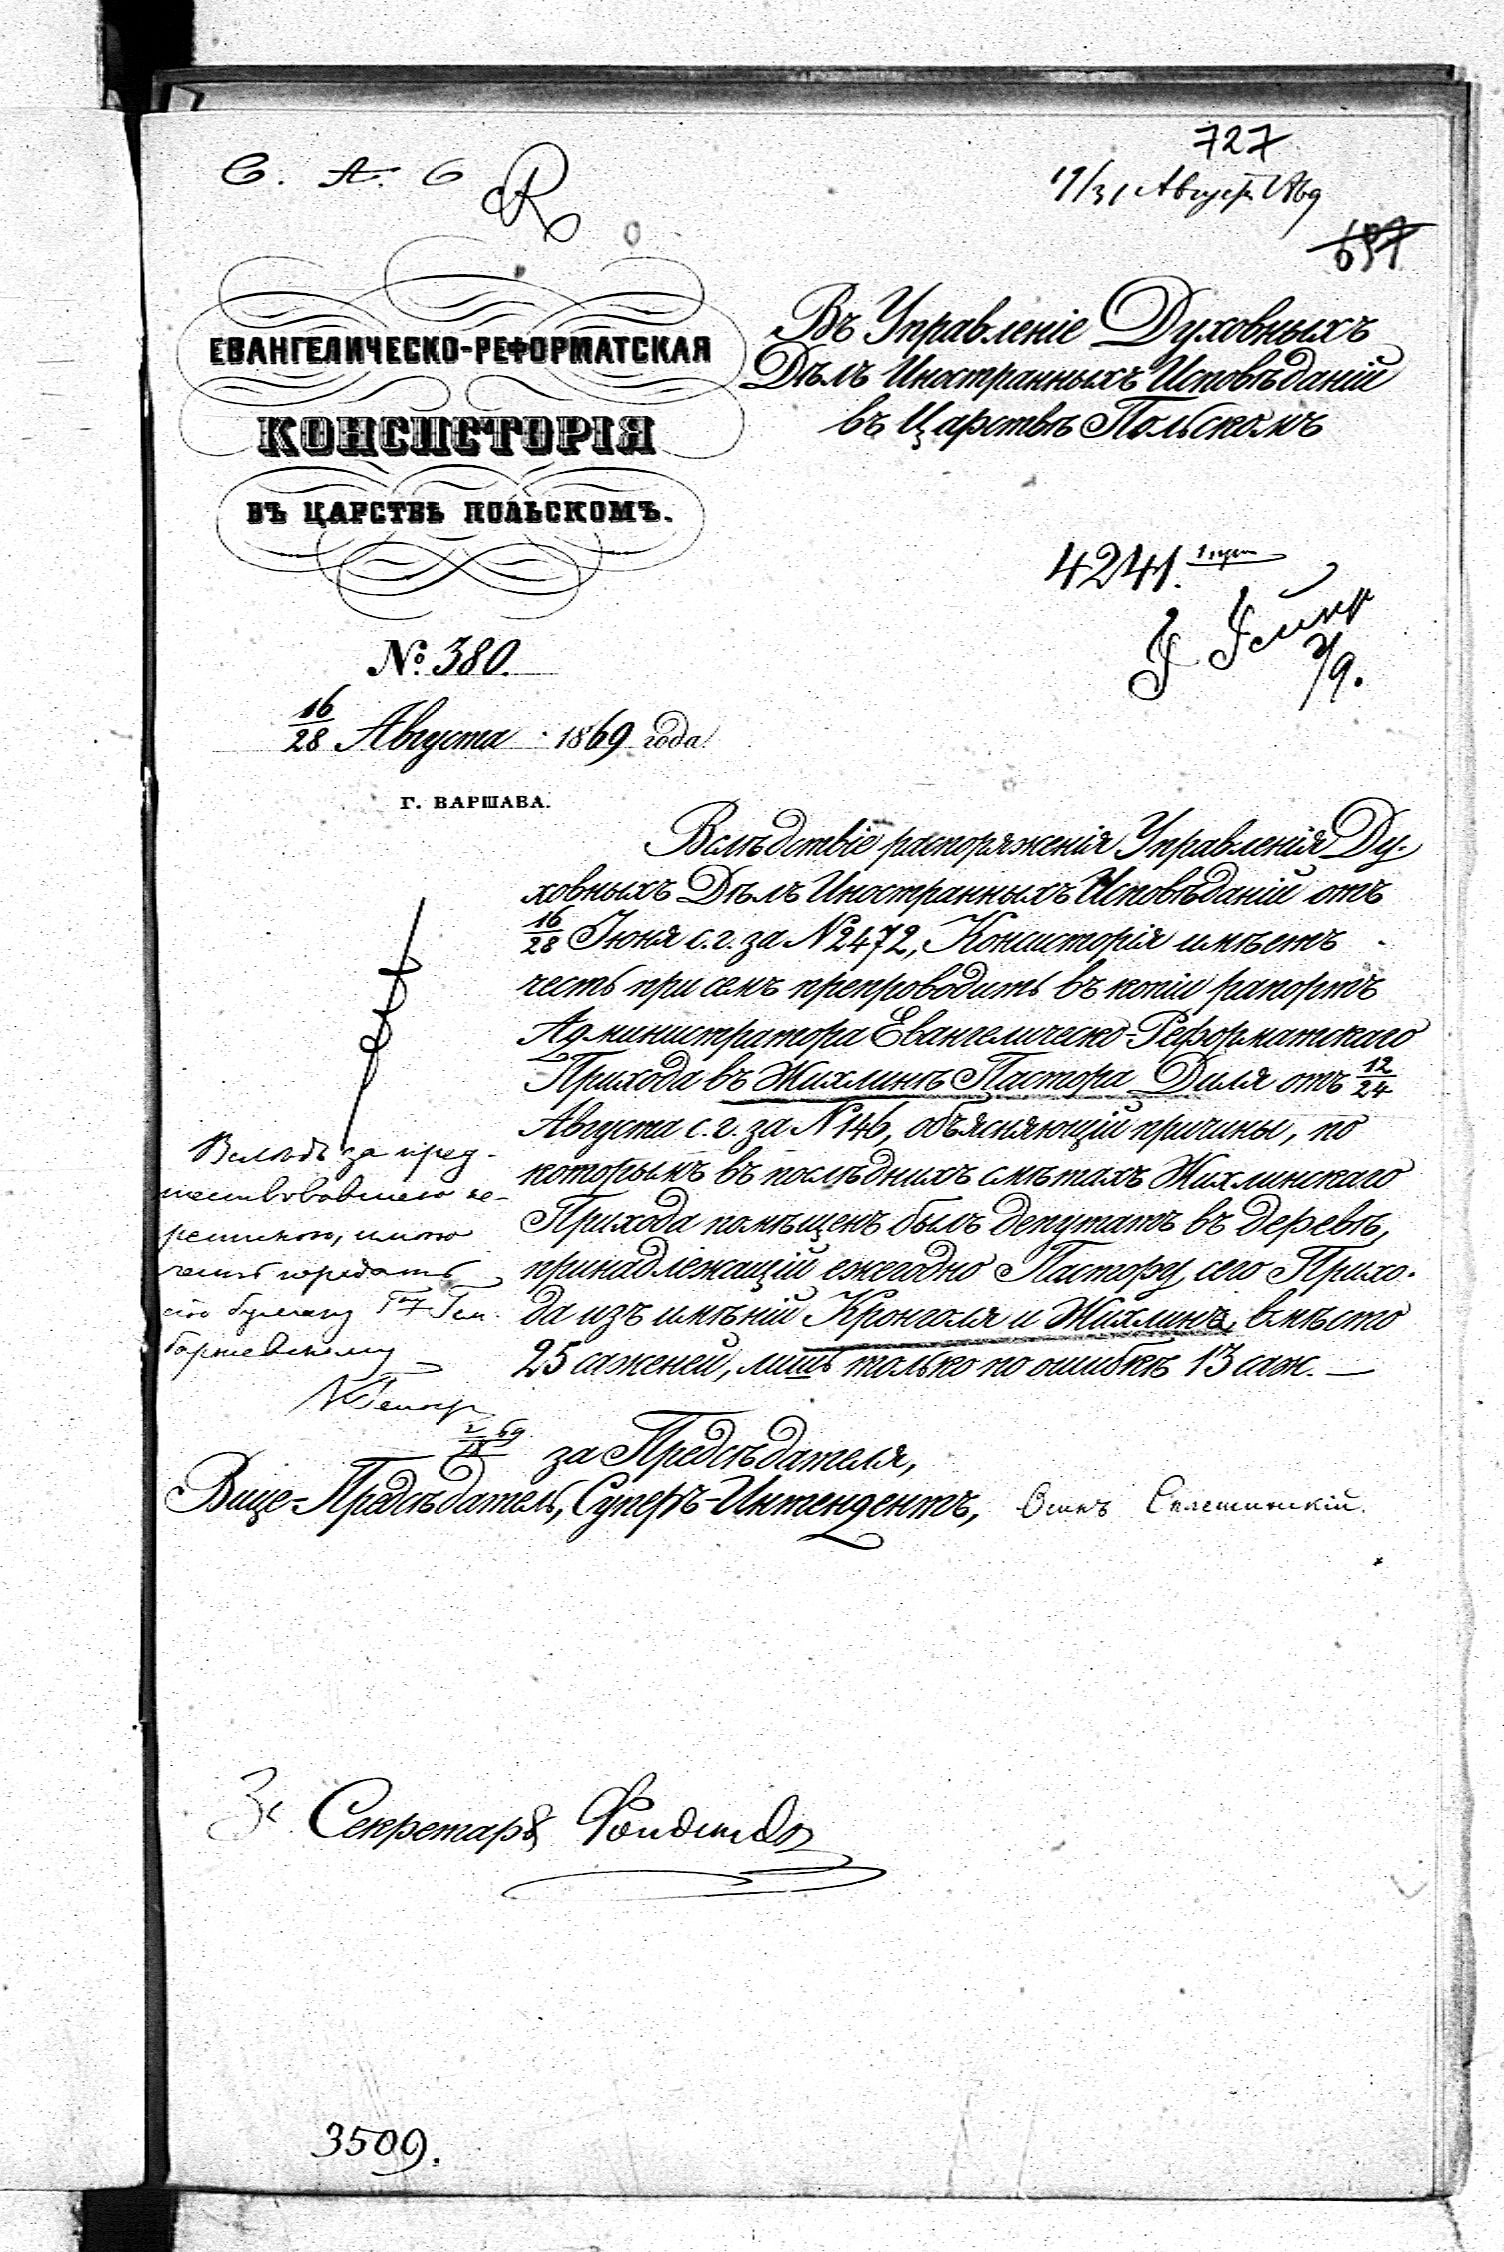 С. А. 6
727
19/31 Август 1869
697
ЕВАНГЕЛИЧЕСКО-РЕФОРМАТСКАЯ
КОНСИСТОРІЯ
ВЪ ЦАРСТВѢ ПОЛЬСКОМЪ.
№ 380.
16/28 Августа 1869 года
Г. ВАРШАВА.
Въ Управленіе Духовныхъ
Дѣлъ Иностранныхъ Исповѣданій
въ Царствѣ Польскомъ
4241.
2/9.
Вслѣдствіе распоряженія Управленія Ду-
ховныхъ Дѣлъ Иностранныхъ Исповѣданій отъ
16/28 Іюня с.г. за № 2472, Консисторія имѣетъ
честь при семъ препроводить въ копіи рапортъ
Администратора Евангелическо-Реформатскаго
Прихода въ Жихлинѣ Пастора Диля отъ 12/24
Августа с.г. за № 146, объясняющій причины, по
которымъ въ послѣднихъ смѣтахъ Жихлинскаго
Прихода помѣщенъ былъ депутатъ въ деревѣ,
принадлежащій ежегодно Пастору сего Прихо-
да изъ имѣній Кронголя и Жихлинъ, вмѣсто
25 саженей, лишь только по ошибкѣ 13 саж. —
Вслѣдъ за пред-
шествовавшею пе-
репискою, имѣю
честь передать
сію бумагу
за Предсѣдателя,
Вице-Предсѣдатель, Суперъ-Интендентъ,
За Секретаря
3509.